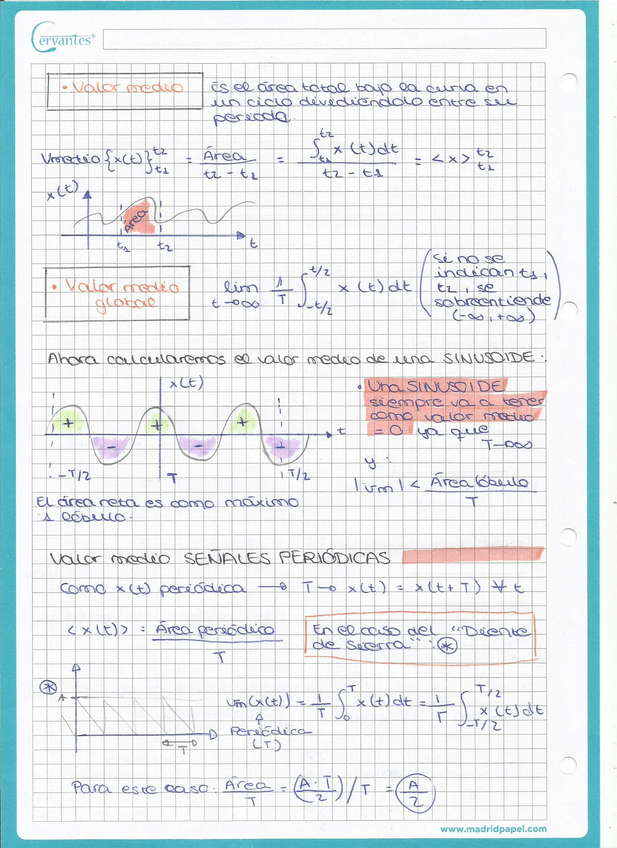 Cervantes®
• Valor medio
Es el área total bajo la curva en
un ciclo divediéndolo entre su
periodo.
Vmedio {x(t)}_{t1}^{t2} = Área / (t2 - t1) = ∫_{t1}^{t2} x(t)dt / (t2 - t1) = <x>_{t1}^{t2}
x(t)
Área
t1 t2 t
• Valor medio
global
lim_{t→∞} 1/T ∫_{-t/2}^{t/2} x(t)dt
(si no se
indican t1,
t2, se
sobreentiende
(-∞, +∞))
Ahora calcularemos el valor medio de una SINUSOIDE.
x(t)
+ - + - + - t
-T/2 T T/2
• Una SINUSOIDE
siempre va a tener
como valor medio
= 0 ya que
T→∞
y:
|vm| < Área lóbulo / T
El área neta es como máximo
1 lóbulo.
Valor medio SEÑALES PERIÓDICAS
Como x(t) periódica → T→ x(t) = x(t+T) ∀ t
<x(t)> = Área periódico / T
En el caso del "Diente
de sierra": *
*
A
T
vm(x(t)) = 1/T ∫_0^T x(t)dt = 1/T ∫_{-T/2}^{T/2} x(t)dt
Periódica
(T)
Para este caso: Área / T = (A·T / 2) / T = A/2
www.madridpapel.com